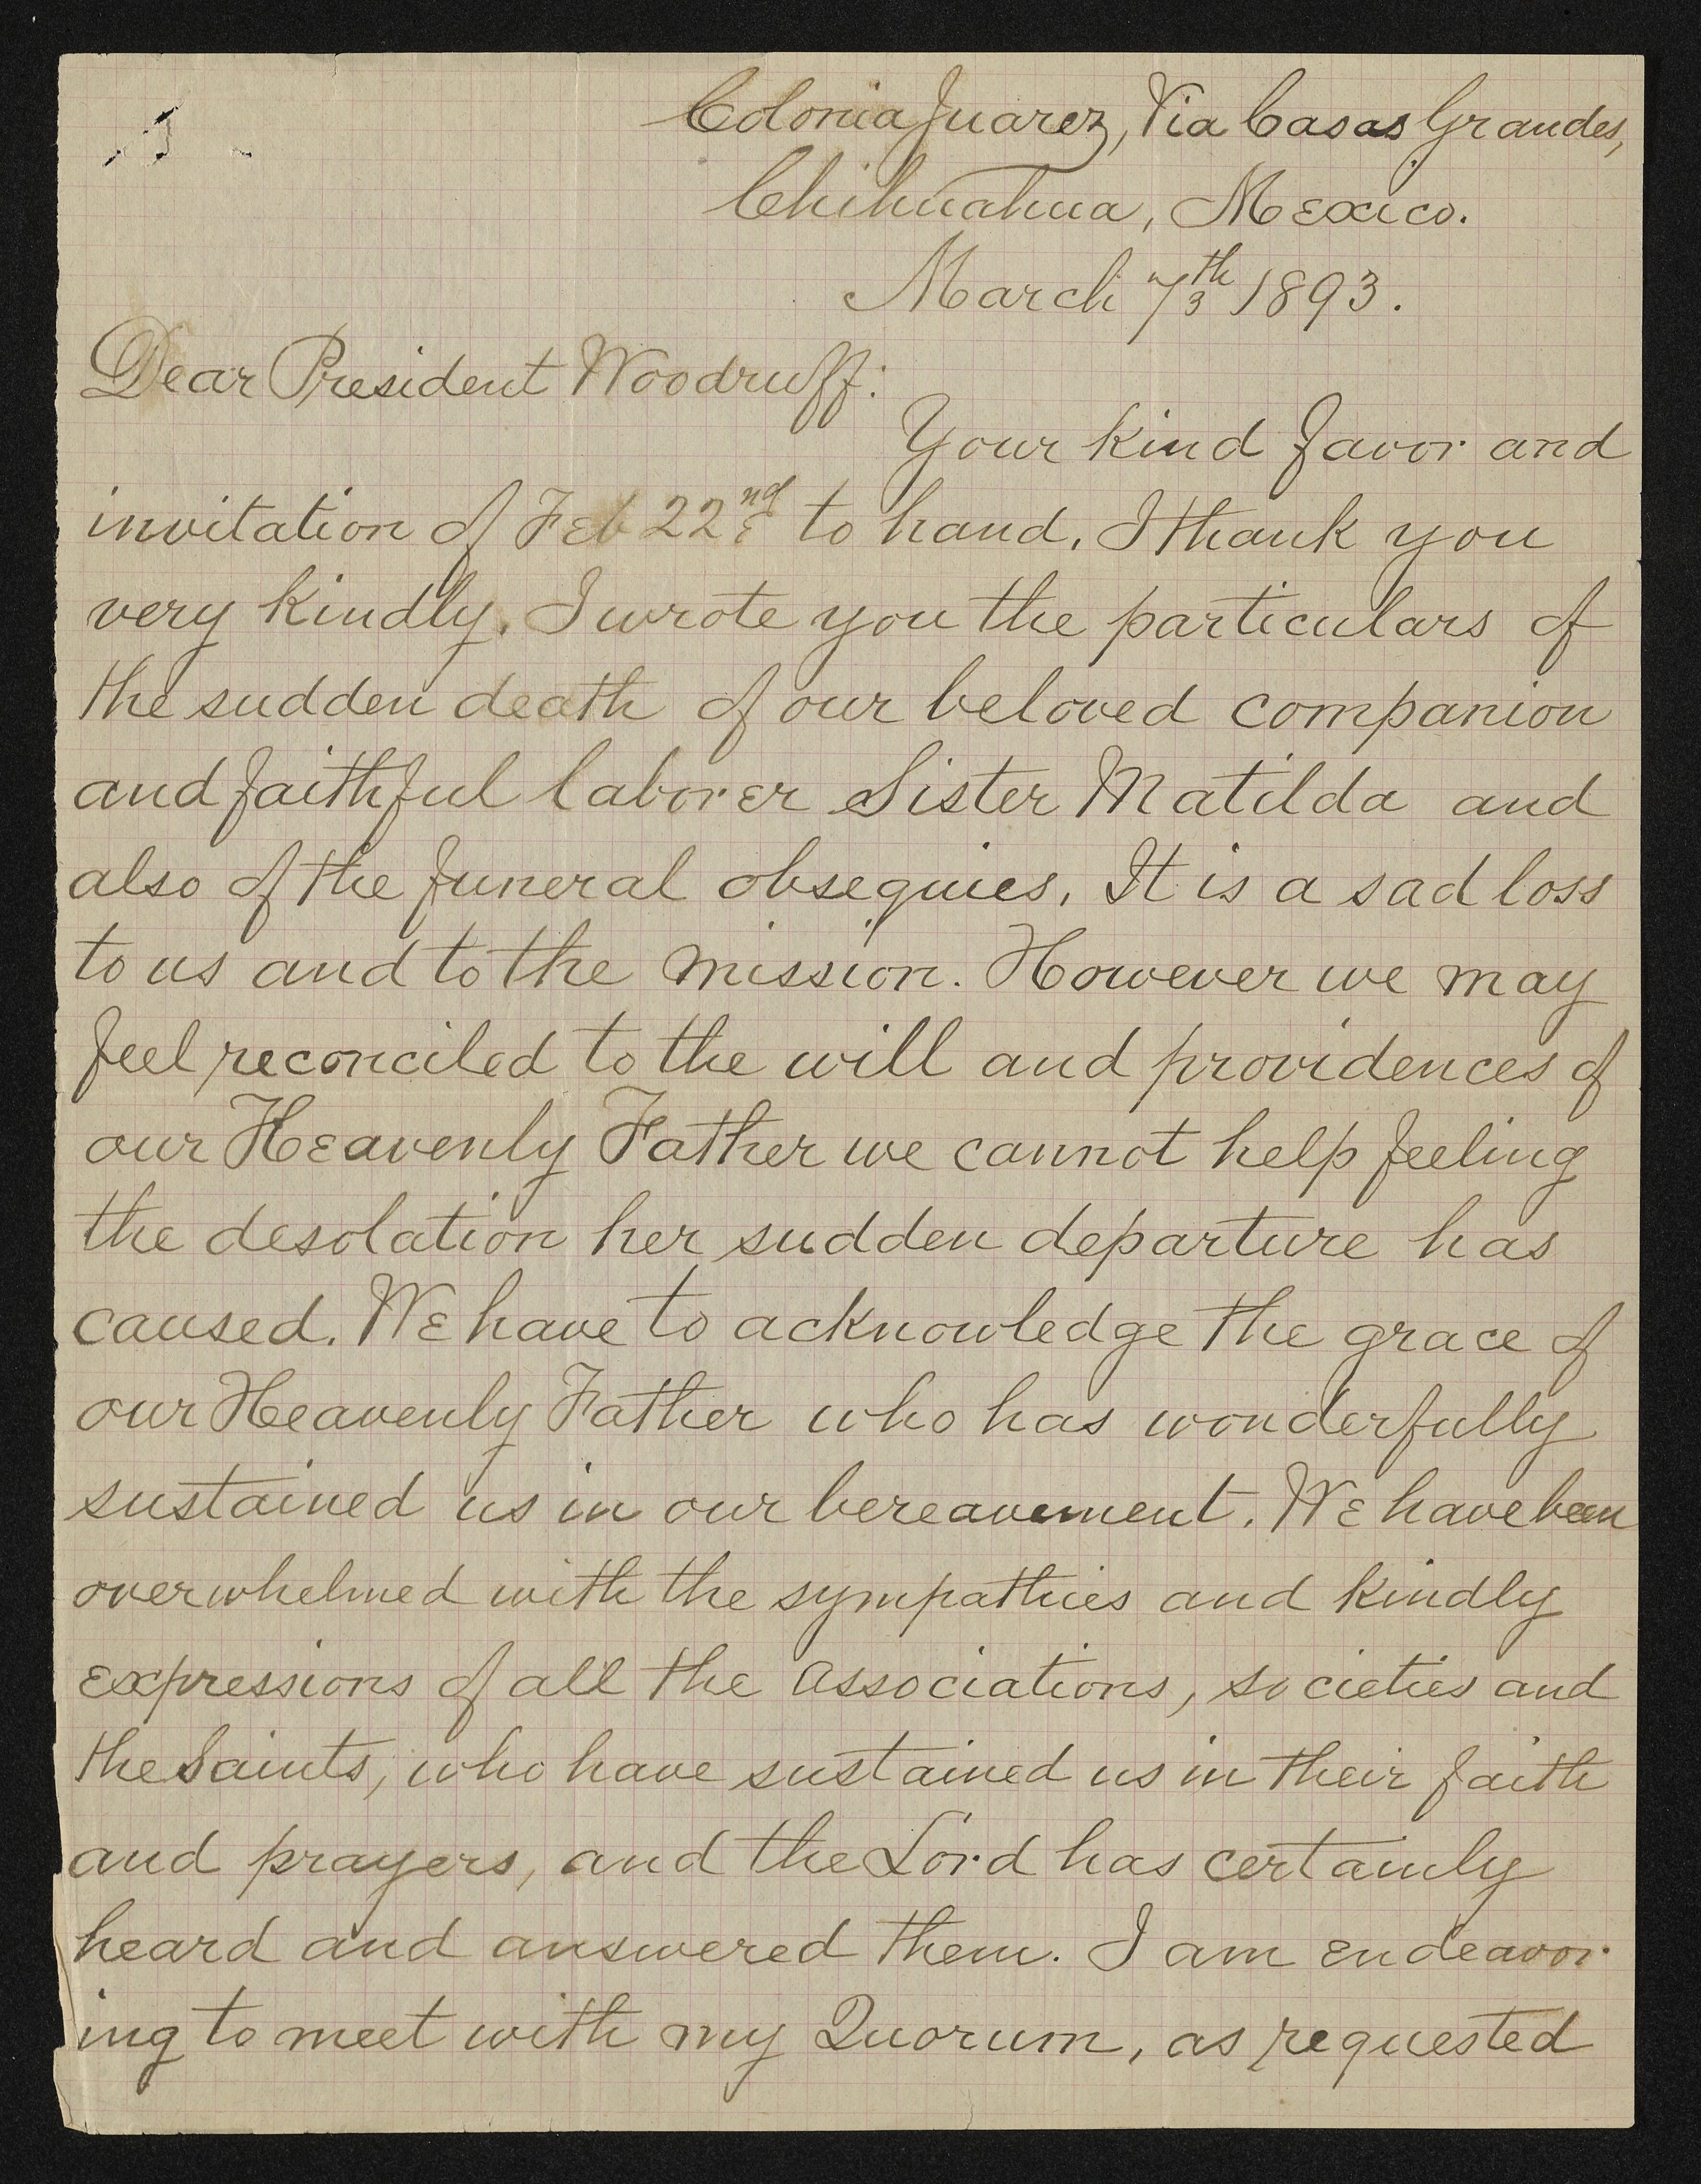 Colonia Juarez, Via Casas Grandes,
Chihuahua, Mexico.
March 7th 1893.
Dear President Woodruff:
Your kind favor and
invitation of Feb 22nd to hand. I thank you
very kindly. I wrote you the particulars of
the sudden death of our beloved companion
and faithful laborer Sister Matilda and
also of the funeral obsequies. It is a sad loss
to us and to the mission. However we may
feel reconciled to the will and providences of
our Heavenly Father we cannot help feeling
the desolation her sudden departure has
caused. We have to acknowledge the grace of
our Heavenly Father who has wonderfully
sustained us in our bereavement. We have been
overwhelmed with the sympathies and kindly
expressions of all the associations, societies and
the Saints, who have sustained us in their faith
and prayers, and the Lord has certainly
heard and answered them. I am endeavor
ing to meet with my Quorum, as requested